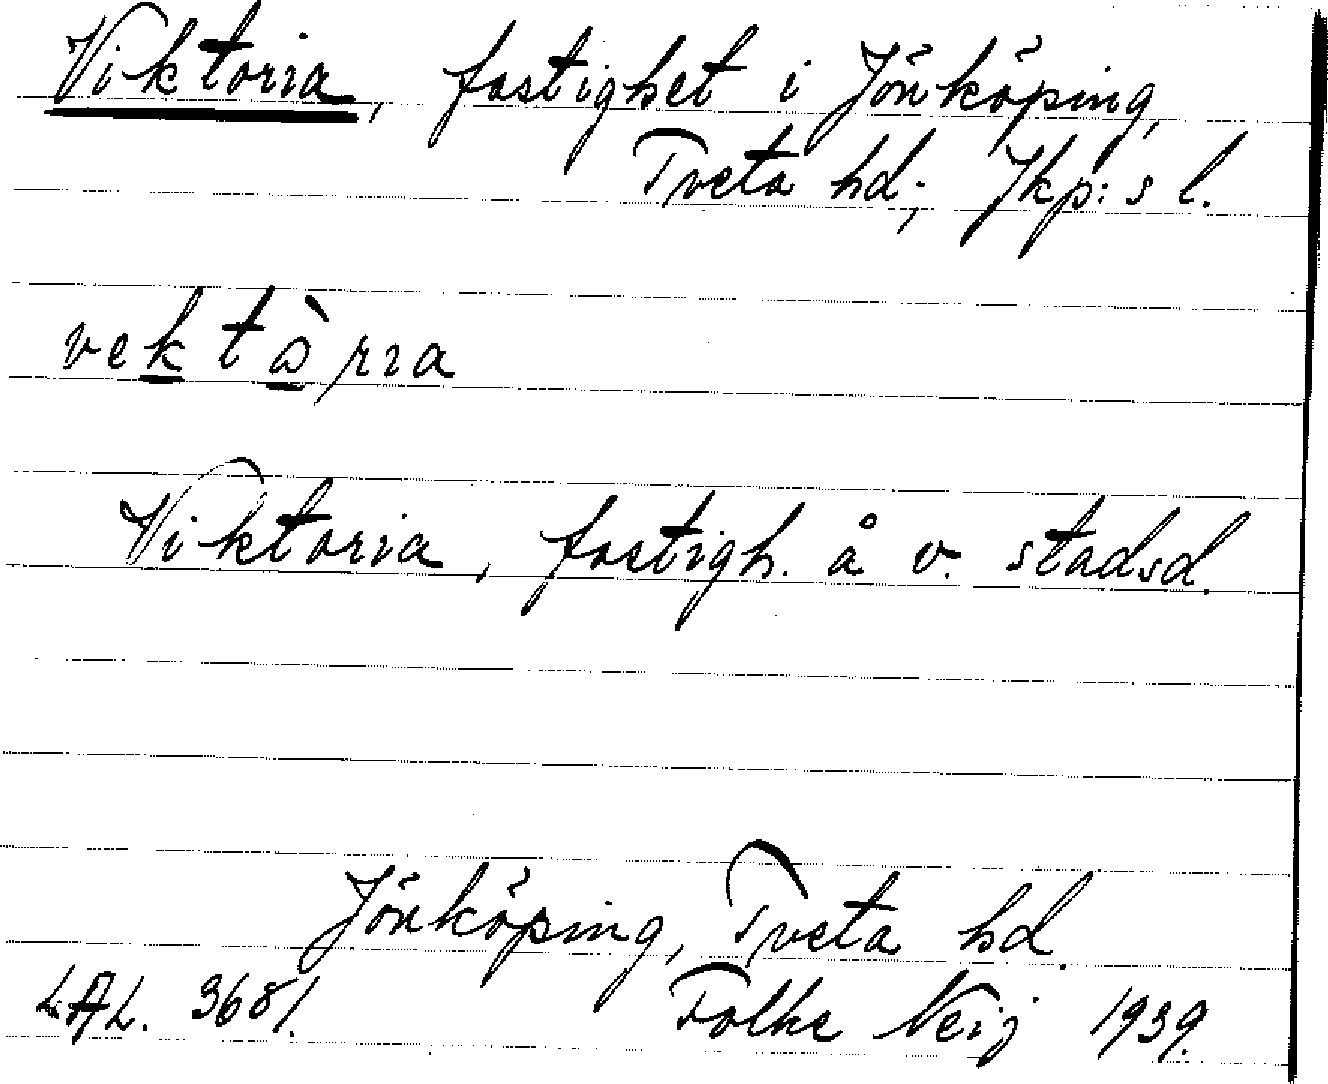 Viktoria, fastighet i Jönköping,
Tveta hd; Jkp:s l.
vektòria
Viktoria, fastigh. å v. stadsd.
Jönköping, Tveta hd.
LAL. 3681. Folke Neij 1939.